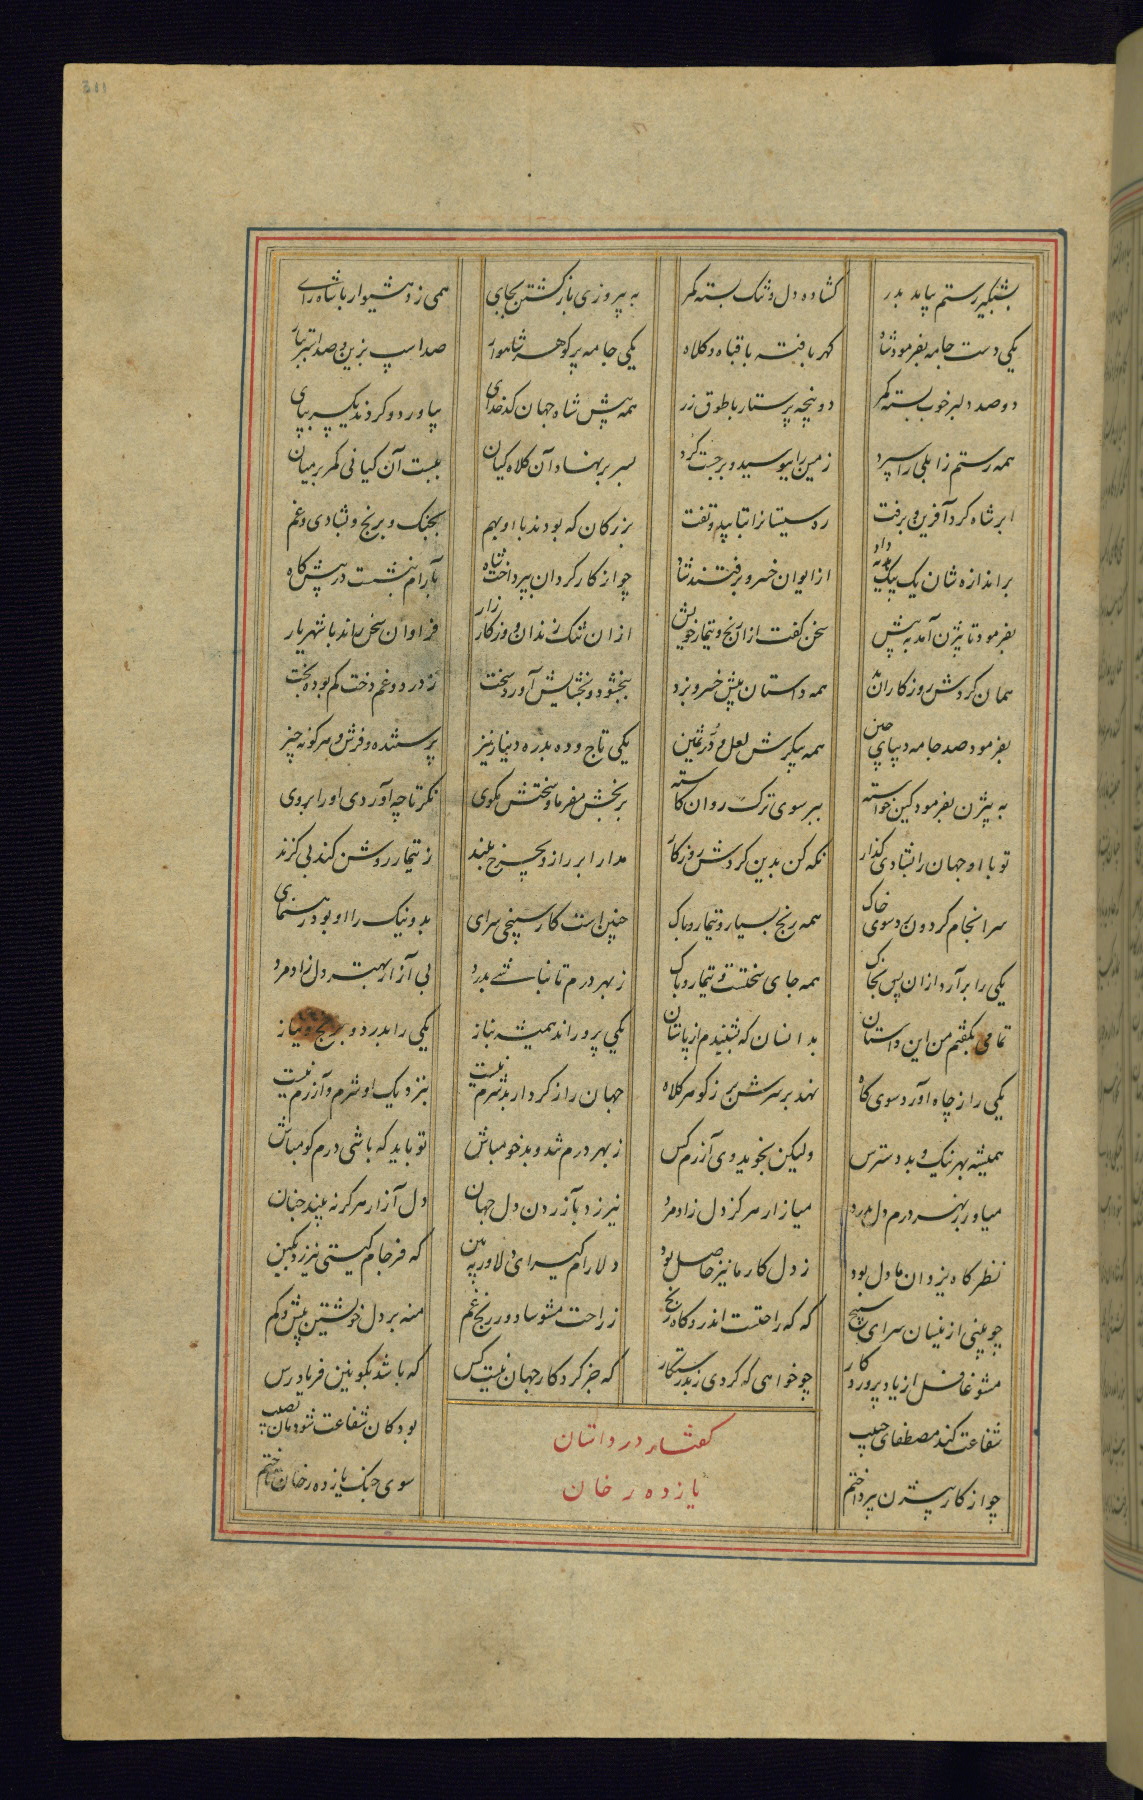 بشبگیر رستم بیامد بدر گشاده دل و تنگ بسته کمر به پیروزی بازگشتن بجای همی زد هشیوار با شاه رای
یکی دست جامه بفرمود شاه گهر بافته با قباه و کلاه یکی جامه پر گوهر شاهوار صد اسپ بزین و صد اشتر ببار
دو صد دلبر خوب بسته کمر دو پنجه پرستار با طوق زر همه پیش شاه جهان کدخدای بیاورد و کردند یکسر بپای
همه رستم زابلی را سپرد زمین را ببوسید و برجست گرد بسر بر نهاد آن کلاه کیان ببست آن کیانی کمر بر میان
ابر شاه کرد آفرین و برفت ره سیستان را بتابید و تفت بزرگان که بودند با او بهم بجنگ و برنج و بشادی و غم
بر اندازه شان یک بیک هدیه داد از ایوان خسرو برفتند شاد چو از کار گردان بپرداخت شاه بآرام بنشست در پیش گاه
بفرمود تا بیژن آمد به پیش سخن گفت ازان رنج و تیمار خویش ازان تنگ زندان و روزگار زار فراوان سخن راند با شهریار
همان گردش روزگاران بد همه داستان پیش خسرو بزد ببخشود و بخشایش آورد سخت ز درد و غم دخت گم بوده بخت
بفرمود صد جامه دیبای چین همه پیکرش لعل و در ثمین یکی تاج و ده بدره دینار نیز پرستنده و فرش و هر گونه چیز
به بیژن بفرمود کین خواسته ببر سوی ترک روان کاسته برنجش مفرما و سختش مگوی نگر تا چه آوردی او را بروی
تو با او جهان را بشادی گذار نگه کن بدین گردش روزگار مدارا بر راز و بچرخ بلند ز تیمار روشن کند بی گزند
سرانجام گردون بود سوی خاک همه رنج بسیار و تیمار و باک چنین است کار سپنجی سرای بد و نیک را او بود رهنمای
یکی را برآرد ازان پس بخاک همه جای سختست و تیمار و باک ز بهر درم تا نباشی بدرد بی آزار بهتر دل راد مرد
تمامی بگفتم من این داستان بدانسان که شنیدم از باستان یکی پروراند همیشه بناز یکی را بدرد و برنج و نیاز
یکی را ز چاه آورد سوی گاه نهد بر سرش بر ز گوهر کلاه جهان را ز کردار بد شرم نیست بنزدیک او شرم و آزرم نیست
همیشه بهر نیک و بد دسترس ولیکن نجوید وی آزرم کس ز بهر درم تند و بدخو مباش تو باید که باشی درم گو مباش
میاور ز بهر درم دل بدرد میازار هرگز دل راد مرد نیرزد بآزردن دل جهان دل آزار هرگز نه بیند چنان
نظرگاه یزدان ما دل بود ز دل کار ما نیز حاصل بود دلارام گیرای دلاور به بین که فرجام گیتی نیرزد بکین
چو بینی ازینسان سرای سپنج که گه راحتست اندرو گاه رنج ز راحت مشو شاد و در رنج غم منه بر دل خویشتن بیش و کم
مشو غافل از یاد پروردگار چو خواهی که گردی ز بد رستگار که جز کردگار جهان نیست کس که باشد بکونین فریادرس
شفاعت کند مصطفای حبیب بود کان شفاعت شود مان نصیب
گفتار در داستان
یازده رخان
چو از کار بیژن بپرداختم سوی جنگ یازده رخان تاختم